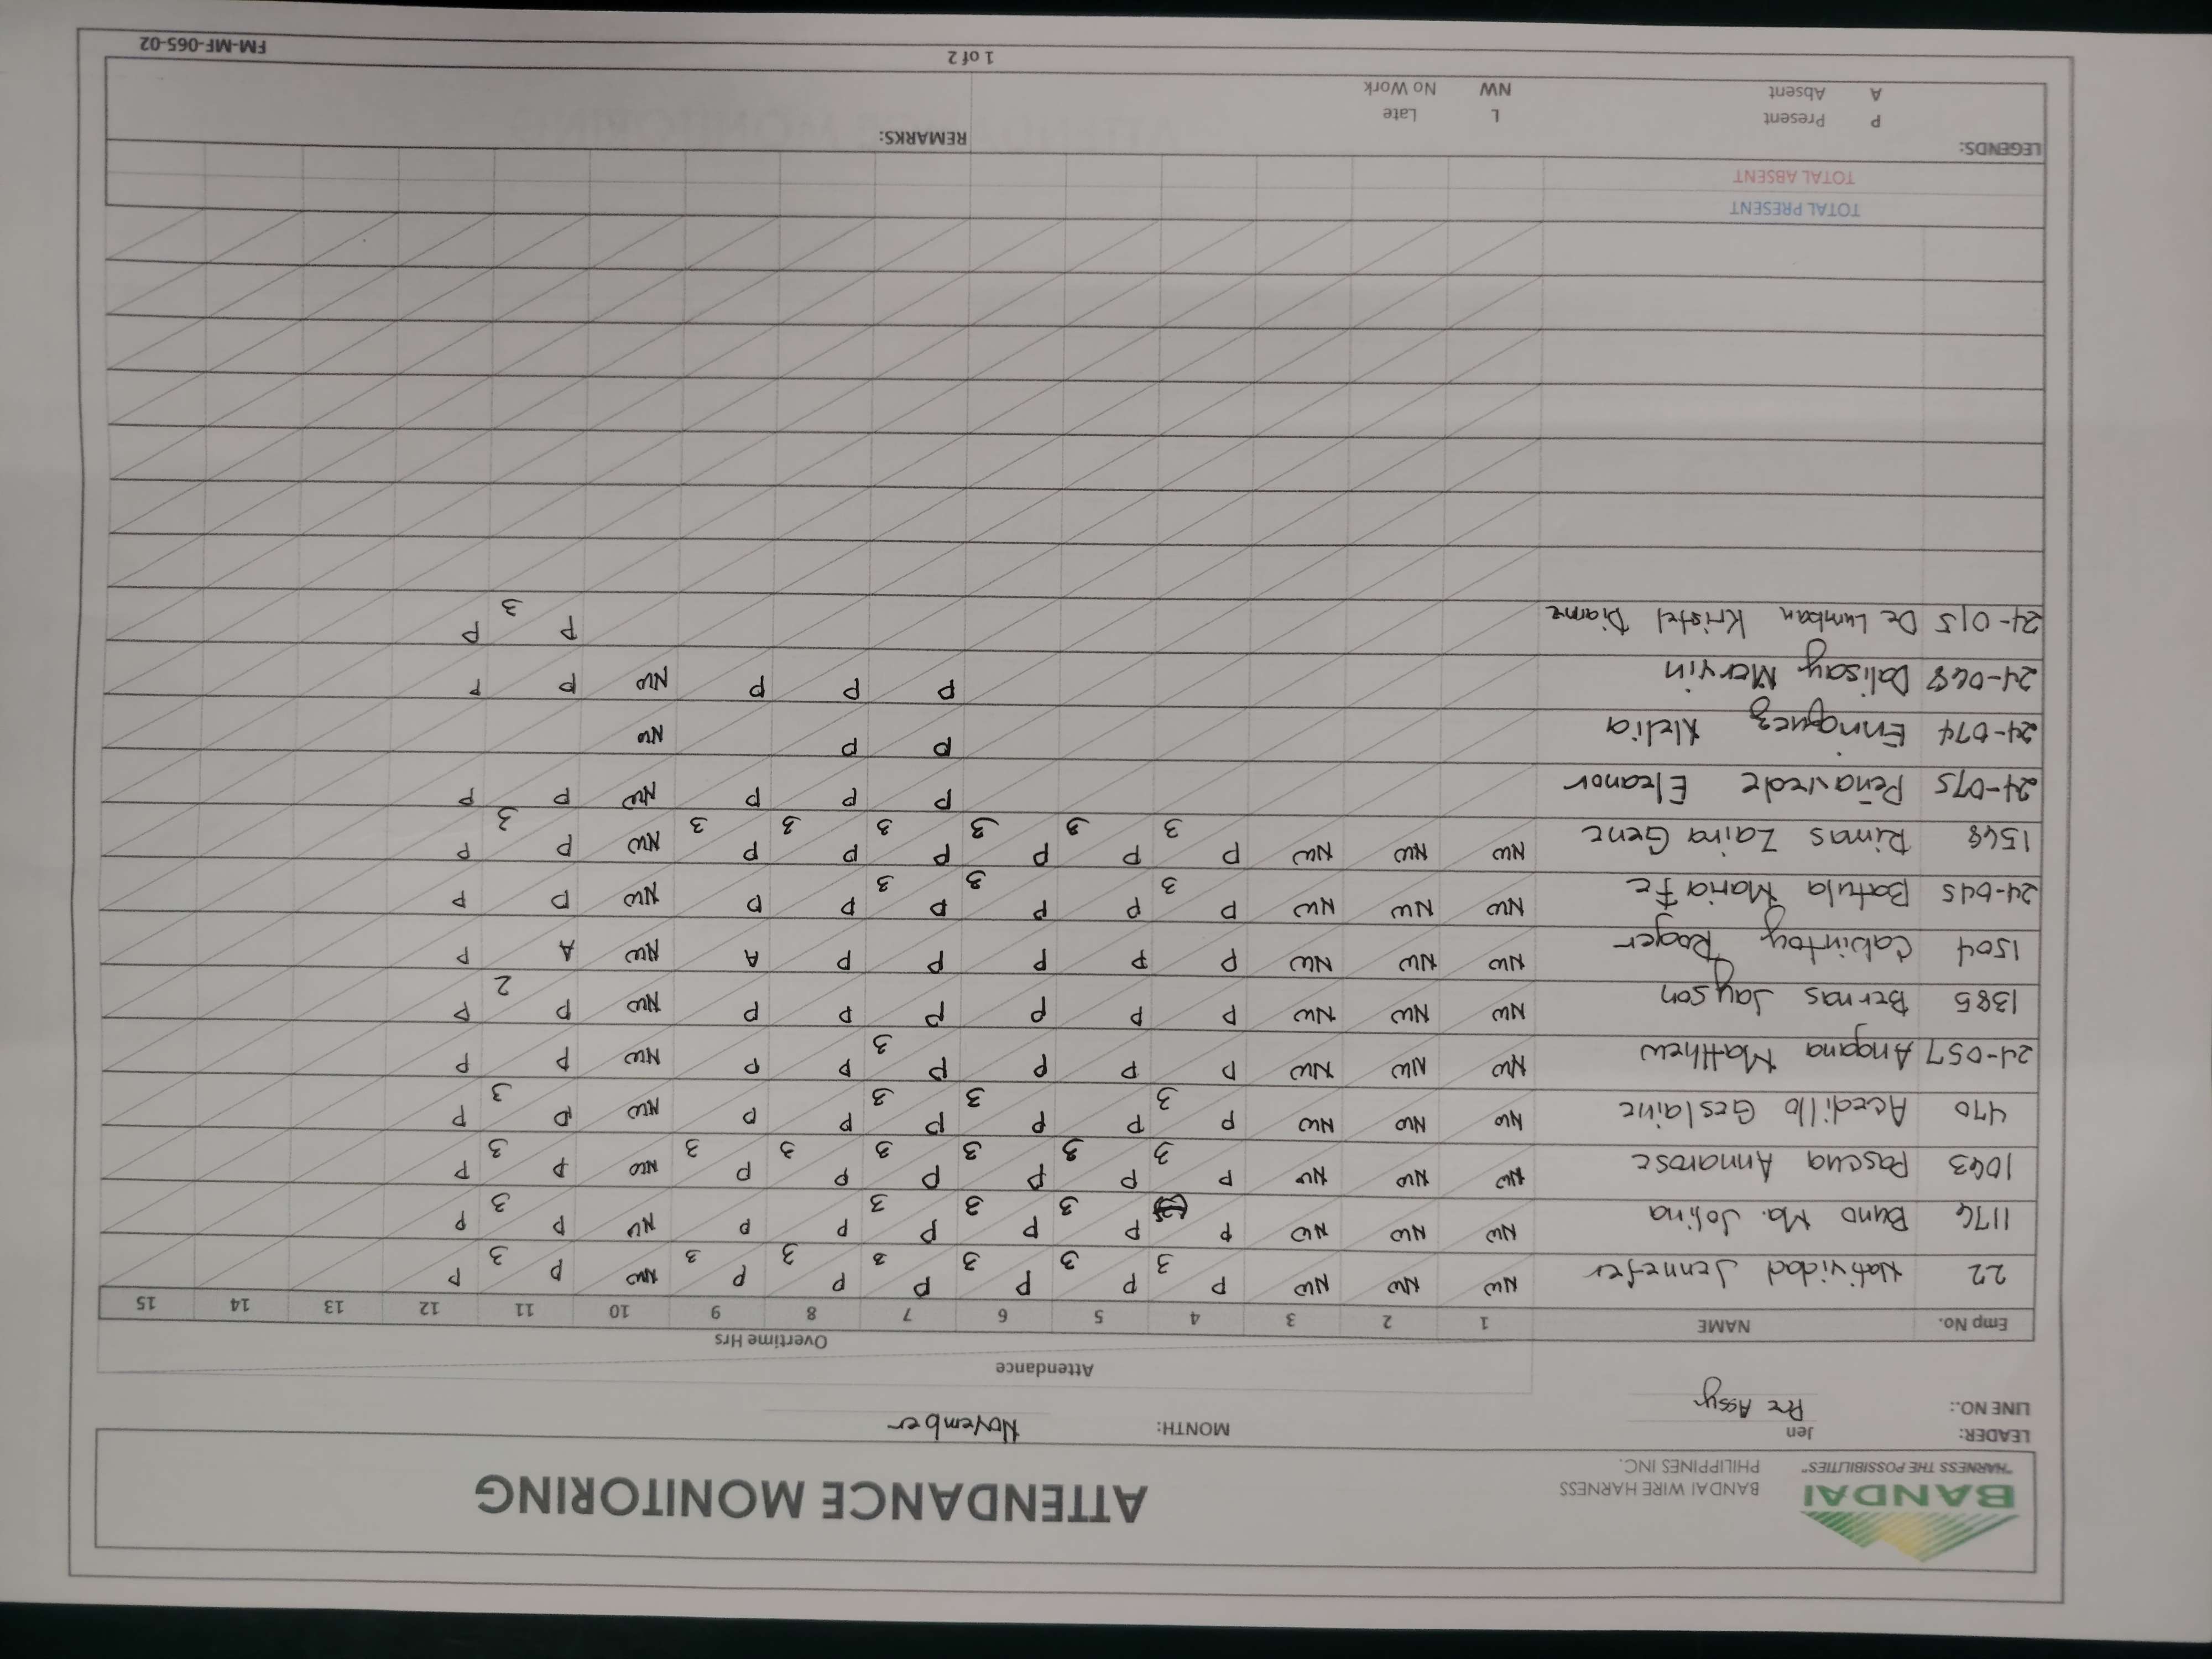 BANDAI
"HARNESS THE POSSIBILITIES"
BANDAI WIRE HARNESS
PHILIPPINES INC.
ATTENDANCE MONITORING
LEADER: Jen MONTH: November
LINE NO.: Pre Assy
Attendance
Overtime Hrs
Emp No. NAME 1 2 3 4 5 6 7 8 9 10 11 12 13 14 15
22 Natividad Jennefer NW NW NW P 3 P 3 P 3 P 3 P 3 P 3 NW P 3 P
1176 Buno Ma. Jolina NW NW NW P P 3 P 3 P 3 P P NW P 3 P
1063 Pascua Annarose NW NW NW P 3 P 3 P 3 P 3 P 3 P 3 NW P 3 P
470 Acedillo Geslaine NW NW NW P 3 P P 3 P 3 P P NW P 3 P
24-057 Angana Matthew NW NW NW P P P P 3 P P NW P P
1385 Bernas Jayson NW NW NW P P P P P P NW P 2 P
1504 Cabintoy Rooger NW NW NW P P P P P A NW A P
24-045 Batula Maria Fe NW NW NW P 3 P P 3 P 3 P P NW P P
1568 Rimas Zaira Gene NW NW NW P 3 P 3 P 3 P 3 P 3 P 3 NW P 3 P
24-075 Eleanor P P P NW P P
24-074 Enriquez Nelia P P NW
24-068 Dalisay Marvin P P P NW P P
24-015 De Lumban Kristel Diane P 3 P
TOTAL PRESENT
TOTAL ABSENT
LEGENDS: REMARKS:
P Present L Late
A Absent NW No Work
1 of 2
FM-MF-065-02